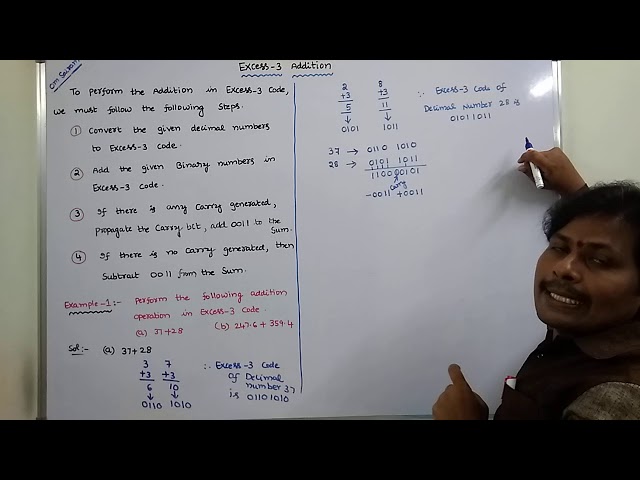 Om Sairam
Excess-3 Addition
To perform the Addition in Excess-3 Code,
we must follow the following Steps.
① Convert the given decimal numbers
to Excess-3 code.
② Add the given Binary numbers in
Excess-3 code.
③ If there is any Carry generated,
Propagate the Carry bit, add 0011 to the
Sum.
④ If there is no Carry generated, then
Subtract 0011 from the Sum.
Example-1:- Perform the following addition
operation in Excess-3 Code.
(a) 37+28 (b) 247.6 + 359.4
Sol:- (a) 37+28
3 7
+3 +3
6 10
↓ ↓
0110 1010
∴ Excess-3 Code
Of Decimal
number 37
is 0110 1010
2 8
+3 +3
5 11
↓ ↓
0101 1011
∵ Excess-3 Code of
Decimal Number 28 is
0101 1011
37 → 0110 1010
28 → 0101 1011
1100 0101
carry
-0011 +0011